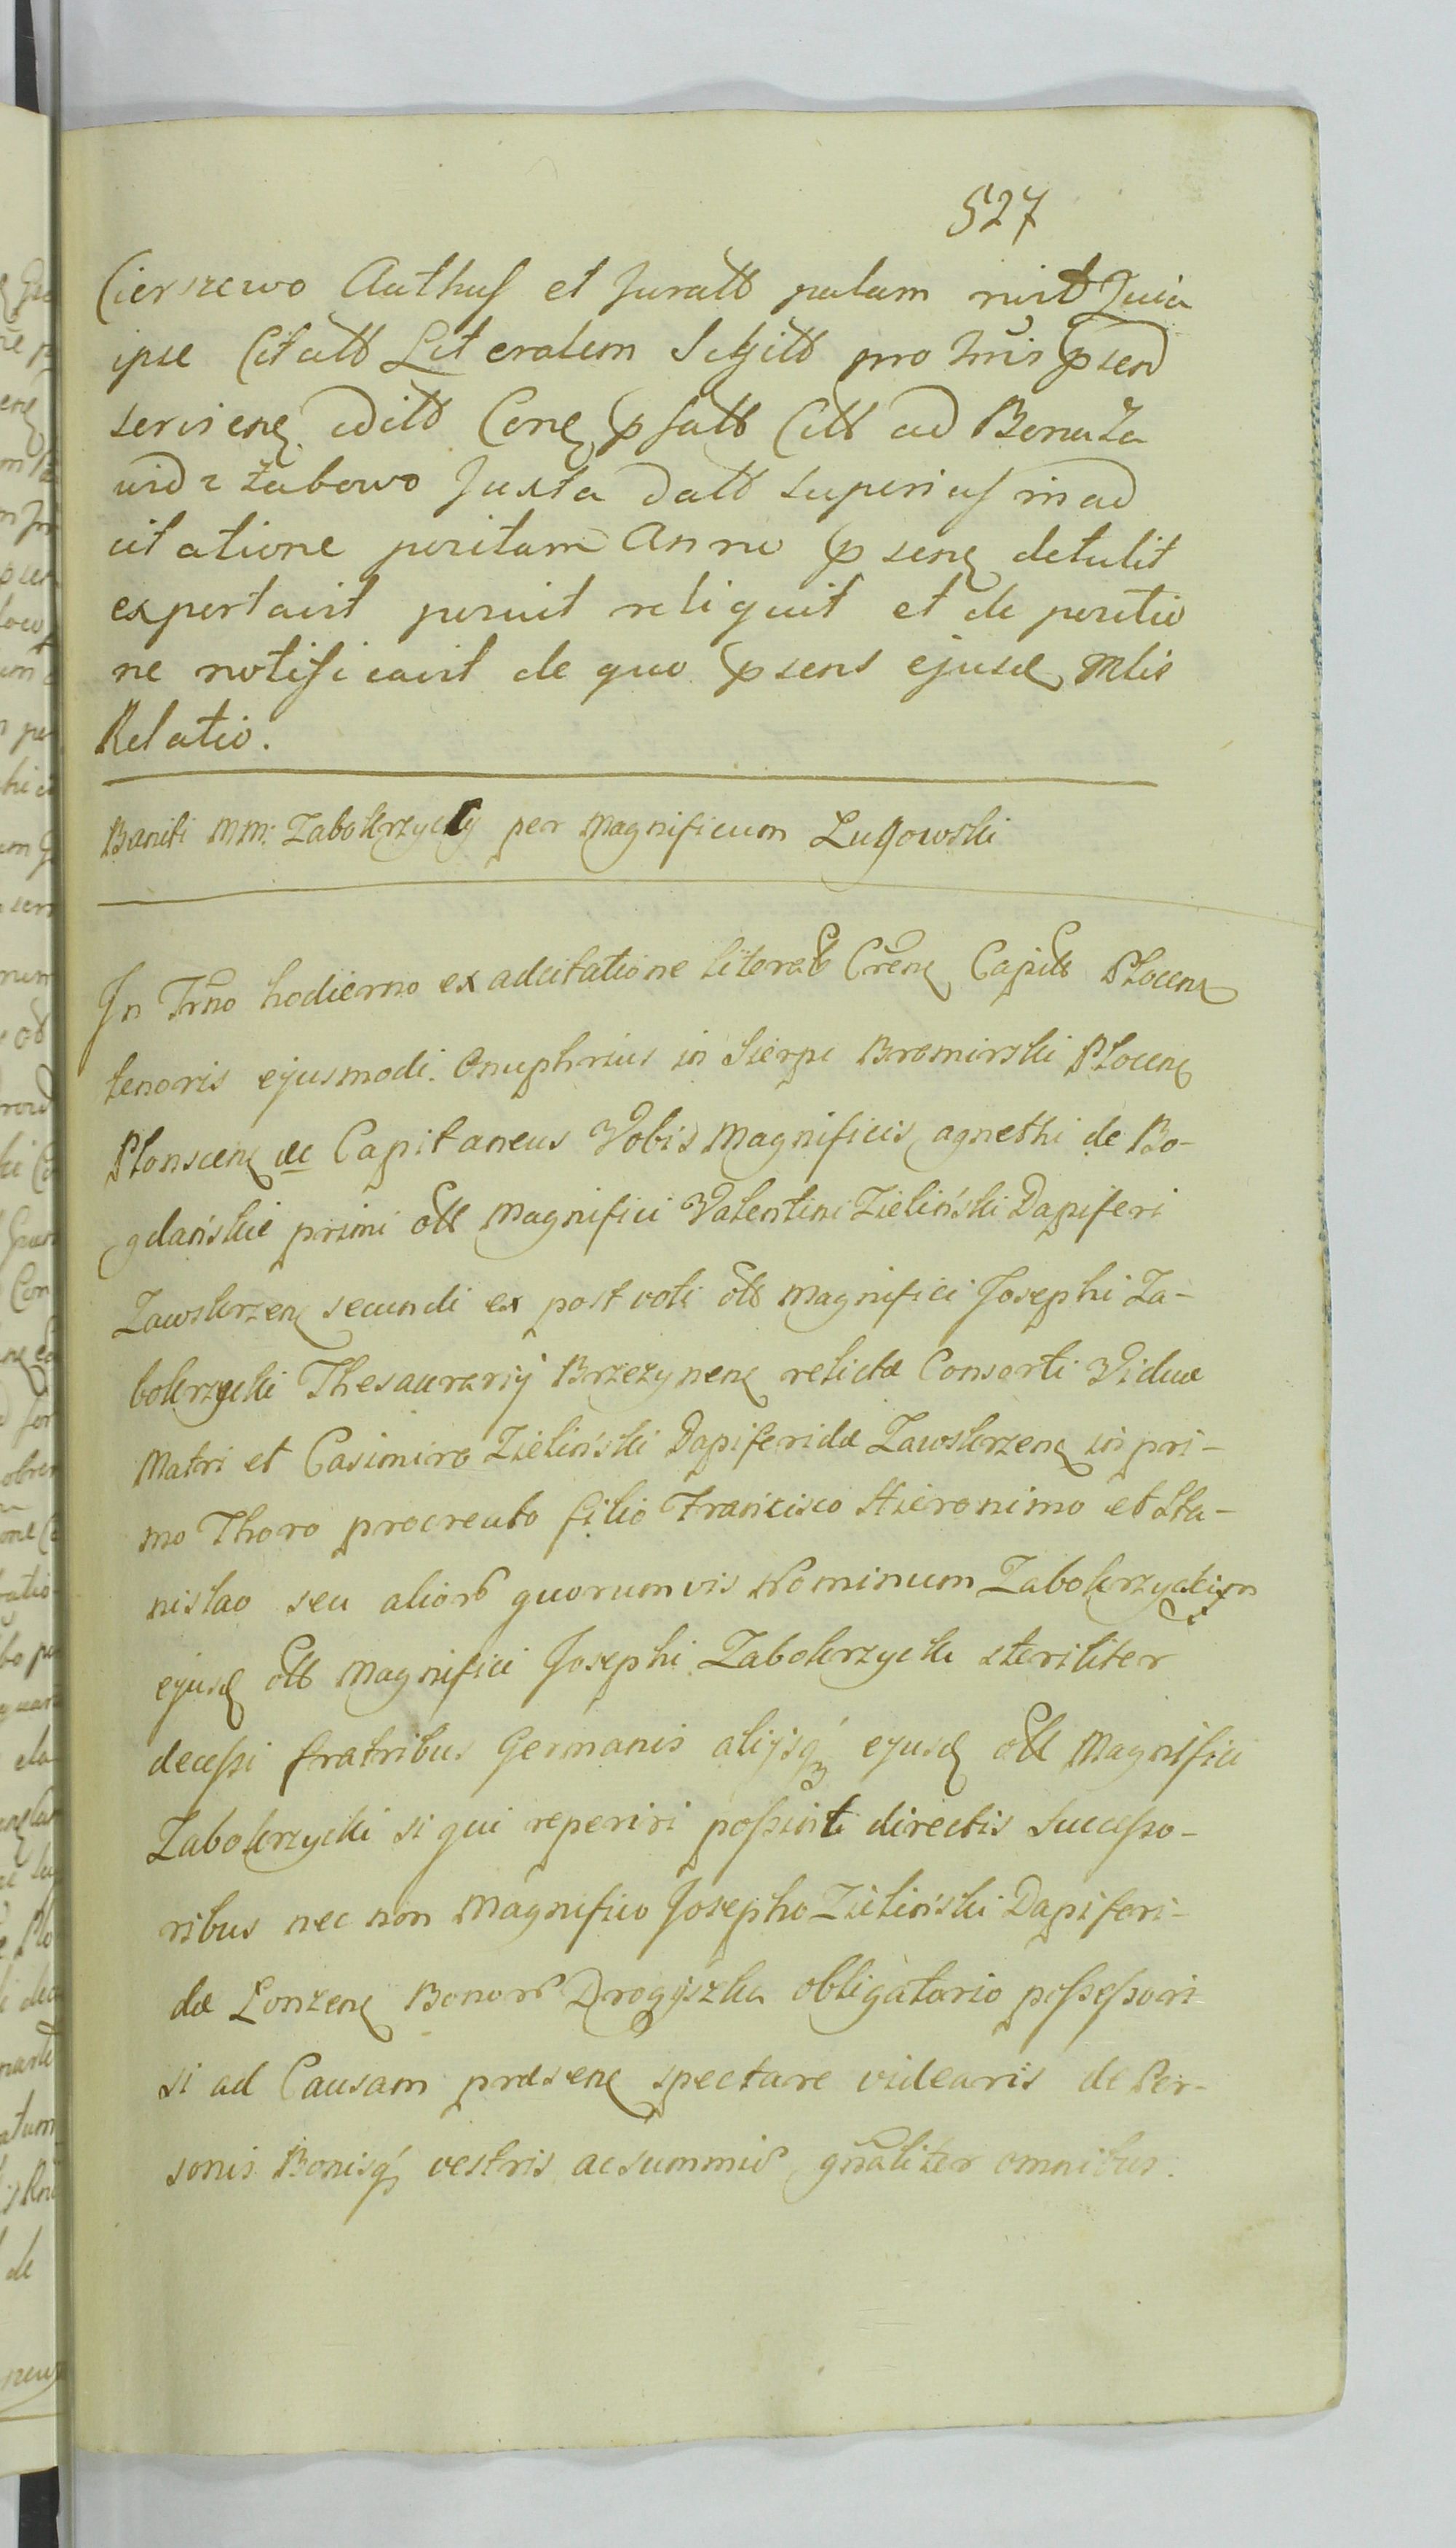 527
Cierszewo Authus et Juratt palam nist Quia
ipse Citatt Literalem Scitt pro Tmis psend
serviene editt Cone psatt Citt ad Bona Za
vidz Żabowo Juxta datt superius in ad
citatione positam Anno psene detulit
exportavit posuit reliquit et de positio
ne notificavit de quo psens ejusd Mlis
Relatio.
Baniti MM: Zabokrzyckij per Magnificum Lugowski
In Trno hodierno ex adcitatione literatt Crene Capitt Plocene
tenoris ejusmodi. Onuphrius in Sierpc Bromirski Plocene
Plonscene &c Capitaneus Vobis Magnificis agnethi de Bo-
gdańskie primi ott Magnifici Valentini Zieliński Dapiferi
Zawskrzene secundi ex post voti ott Magnifici Josephi Za-
bokrzycki Thesaurarij Brzezynene relictæ Consorti Viduæ
Matri et Casimiro Zieliński Dapiferidæ Zawskrzene in pri-
mo Thoro procreato filio Francisco Hieronimo et Sta-
nislao seu alior quorumvis Nominum Zabokrzyckim
ejusd ott Magnifici Josephi Zabokrzycki steriliter
decessi fratribus Germanis alijsq ejusd ott Magnifici
Zabokrzycki si qui reperiri possint directis Successo-
ribus nec non Magnifico Josepho Zieliński Dapiferi-
dæ Lonzene Bonor Drogiszka obligatorio possessori
si ad Causam præsene spectare videaris de Per-
sonis Bonisq vestris ac summis gnaliter omnibus.